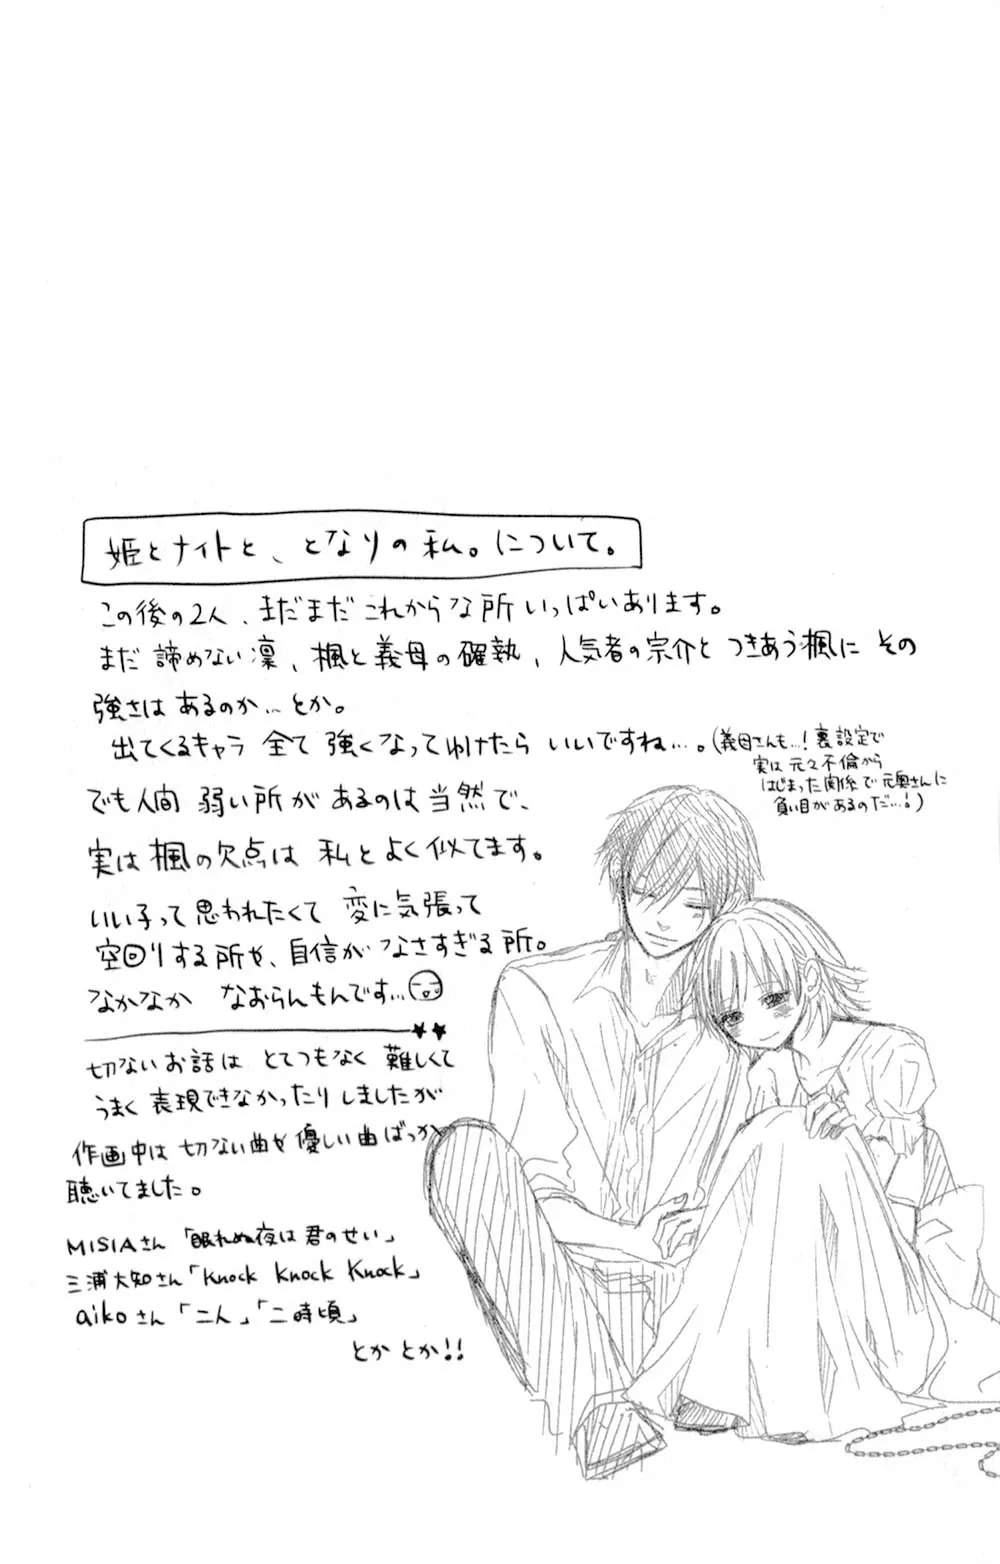 姫とナイトと、となりの私。について。
この後の2人、まだまだこれからな所いっぱいあります。
まだ諦めない凜、楓と義母の確執、人気者の宗介とつきあう楓にその
強さはあるのか…とか。
出てくるキャラ全て強くなってゆけたらいいですね…。(義母さんも…!裏設定で
実は元々不倫から
はじまった関係で元奥さんに
負い目があるのだ…!)
でも人間弱い所があるのは当然で、
実は楓の欠点は私とよく似てます。
いい子って思われたくて変に気張って
空回りする所や、自信がなさすぎる所。
なかなかなおらんもんです…
切ないお話はとてつもなく難しくて
うまく表現できなかったりしましたが
作画中は切ない曲や優しい曲ばっか
聴いてました。
MISIAさん「眠れぬ夜は君のせい」
三浦大知さん「Knock Knock Knock」
aikoさん「二人」「二時頃」
とかとか!!